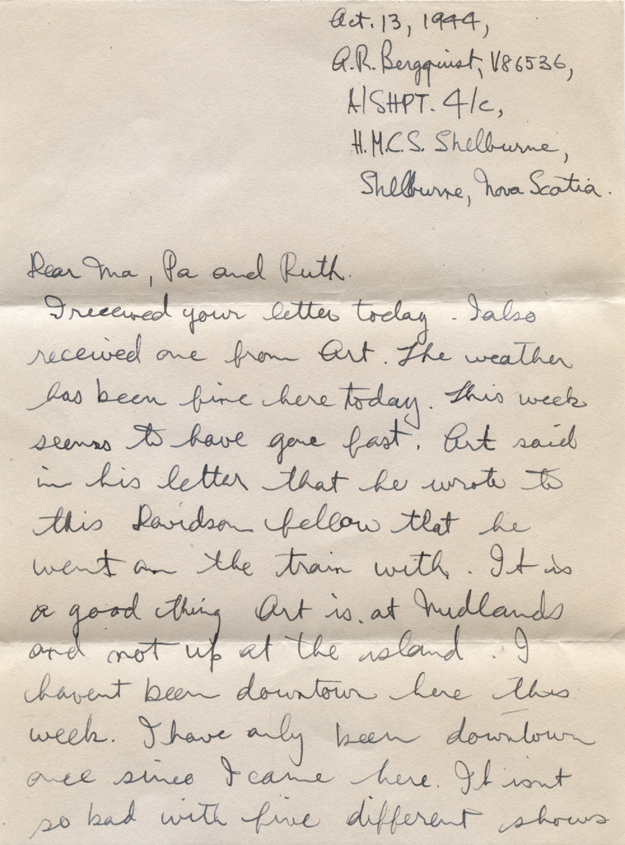 Oct. 13, 1944,
A.R. Bergquist, V86536,
A/SHPT. 4/c,
H.M.C.S. Shelburne,
Shelburne, Nova Scotia.
Dear Ma, Pa and Ruth.
I received your letter today. I also
received one from Art. The weather
has been fine here today. This week
seems to have gone fast. Art said
in his letter that he wrote to
this Davidson fellow that he
went on the train with. It is
a good thing Art is at Midlands
and not up at the island. I
havent been downtown here this
week. I have only been downtown
once since I came here. It isnt
so bad with five different shows